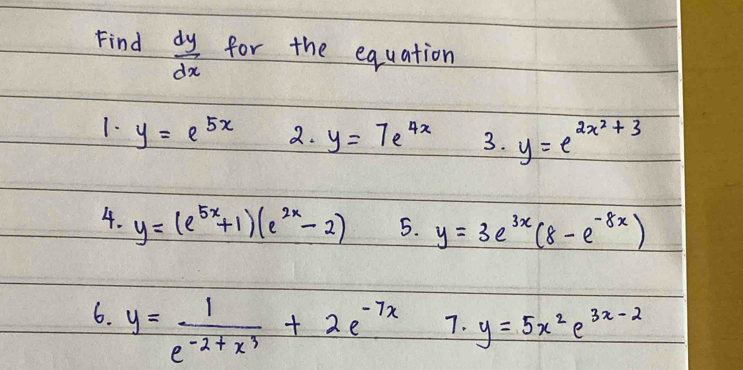 Find dy/dx for the equation
1. y = e^{5x} 2. y = 7e^{4x} 3. y = e^{2x² + 3}
4. y = (e^{5x}+1)(e^{2x} - 2) 5. y = 3e^{3x}(8 - e^{-8x})
6. y = 1/e^{-2 + x³} + 2e^{-7x} 7. y = 5x² e^{3x - 2}